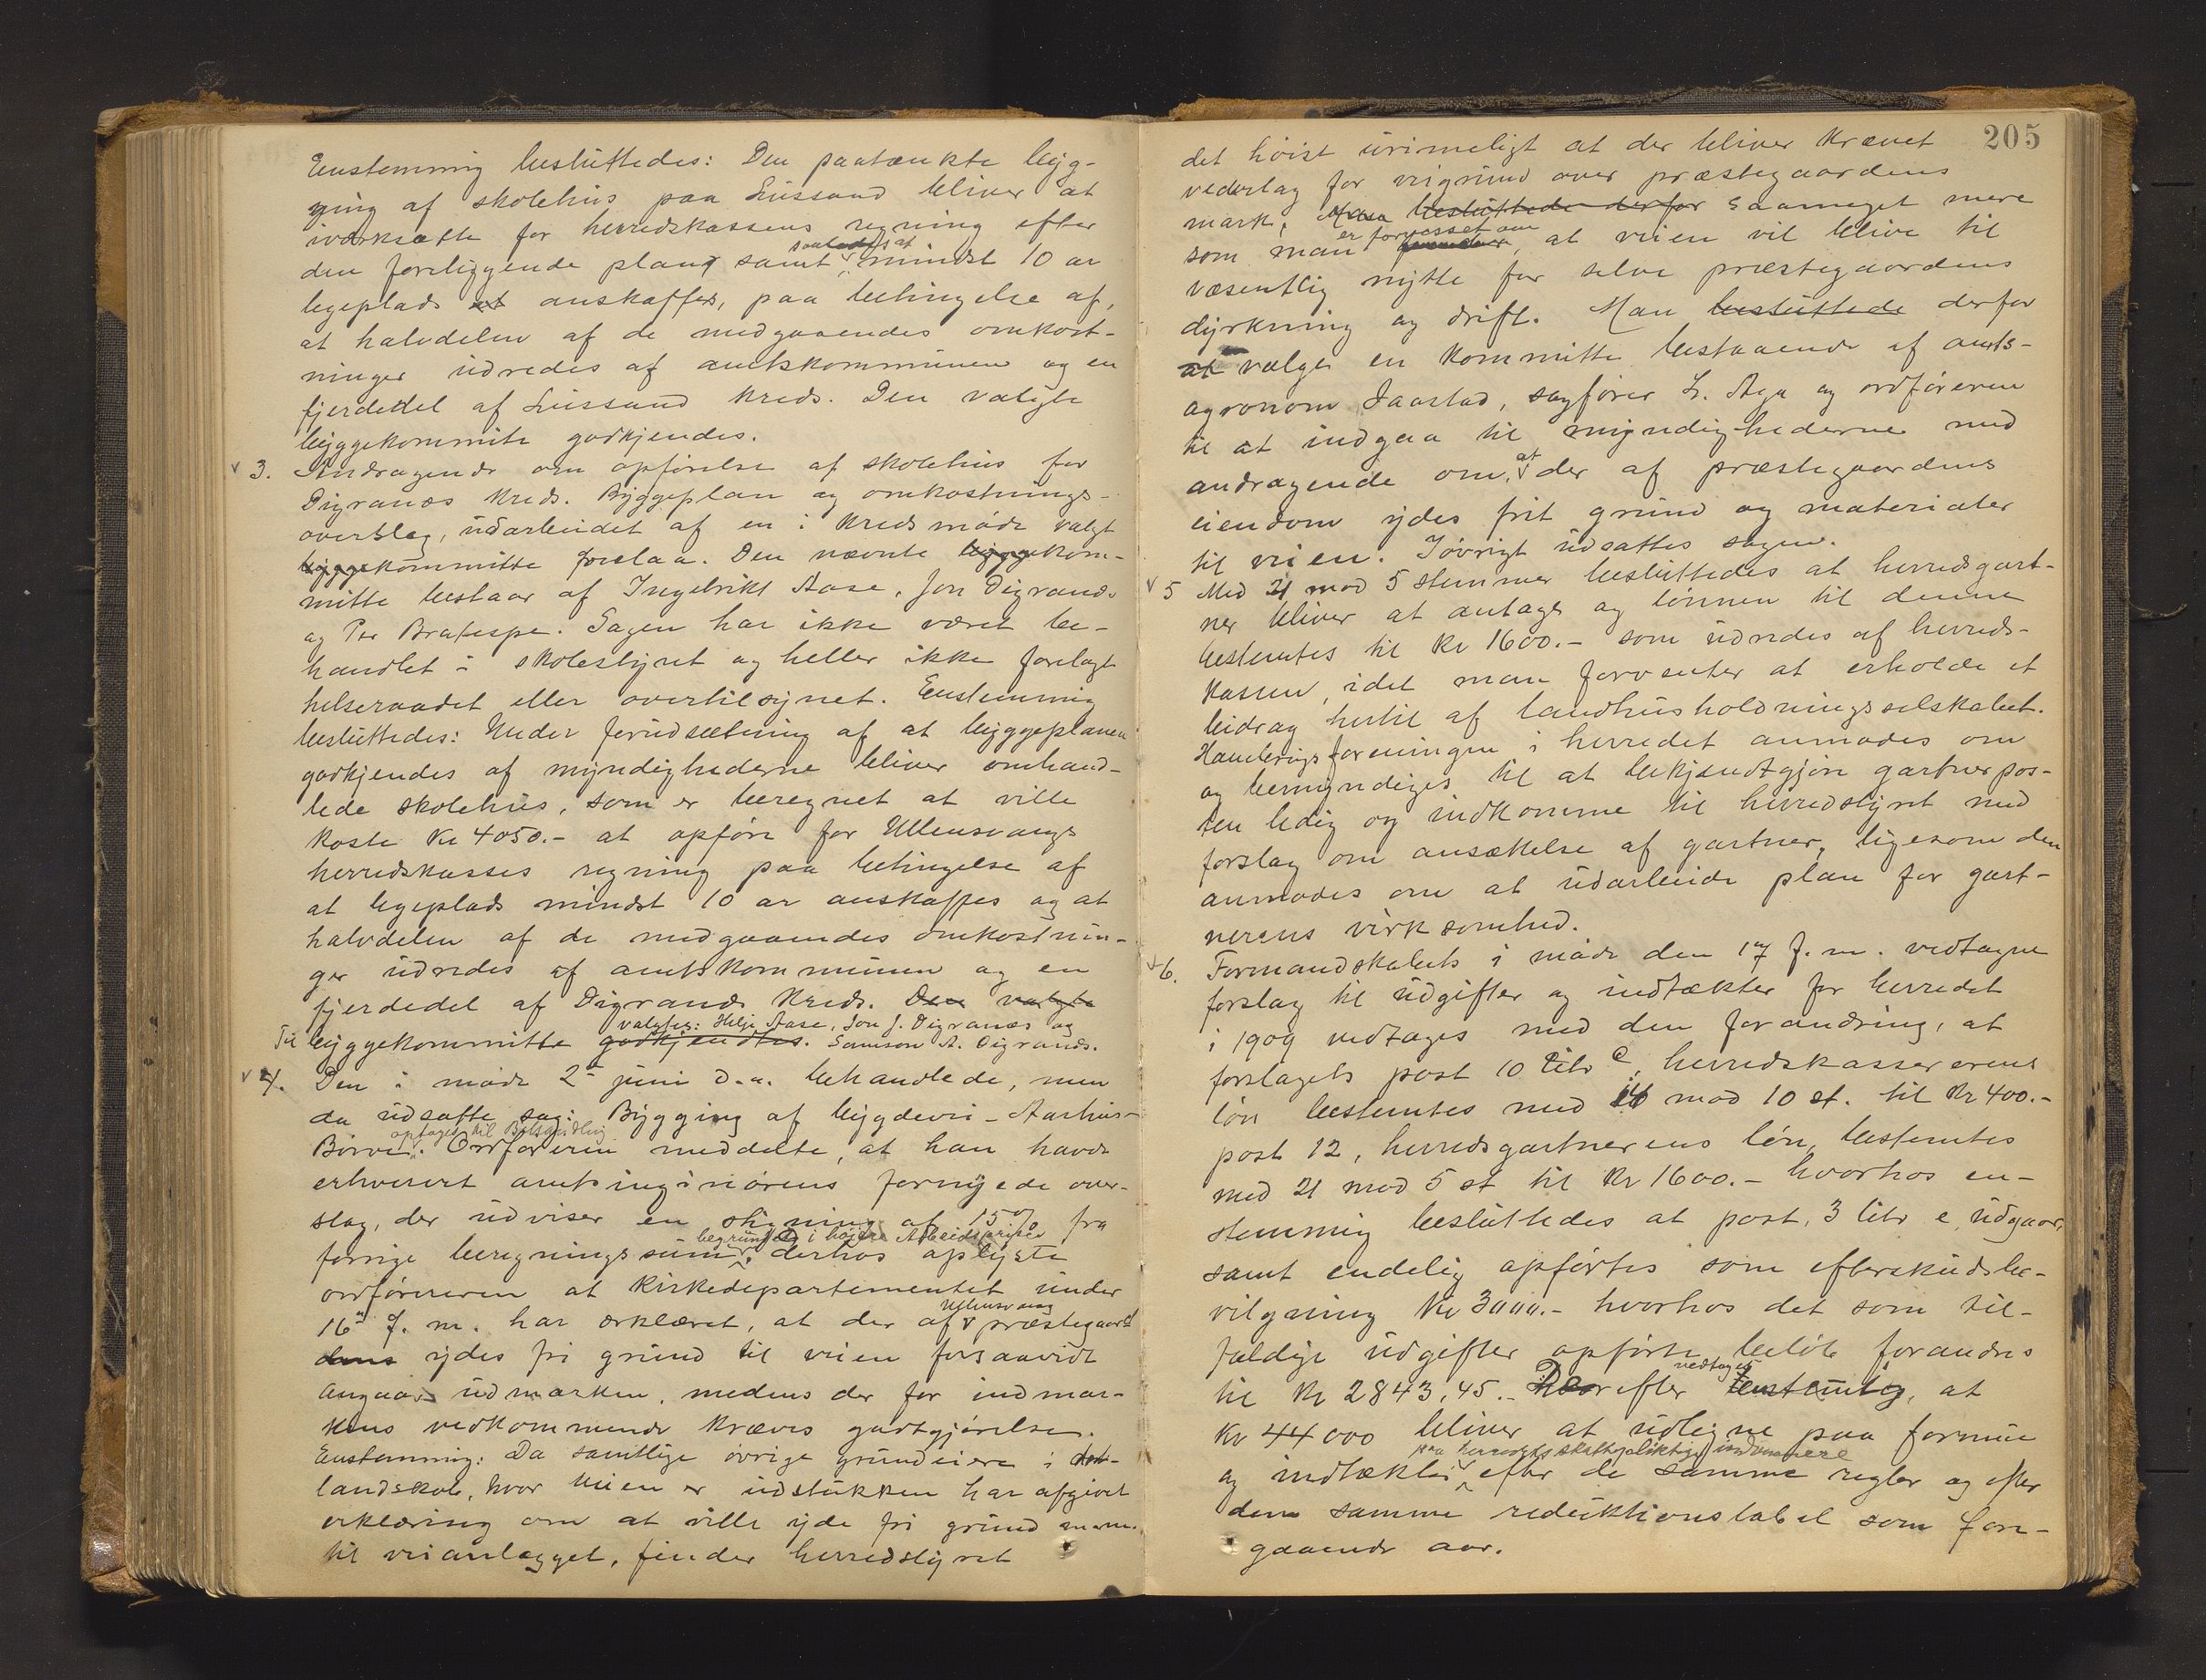 Eenstemmig besluttedes: Den paatænkte byg-
ging af skolehus paa Lussand bliver at
iværksætte for herredskassens regning efter
den foreliggende plan samt saaledes at mindst 10 ar
legeplads at anskaffes, paa betingelse af,
at halvdelen af de medgaaendes omkost-
ninger udredes af amtskommunen og en
fjerdedel af Lussand kreds. Den valgte
byggekommite godkjendes.
3. Andragende om opførelse af skolehus for
Digranæs kreds. Byggeplan og omkostnings-
overslag, udarbeidet af en i kredsmøde valgt
byggekommitte forelaa. Den nævnte byggekom-
mitte bestaar af Ingebrikt Aase, Jon Digranæs
og Per Bratespe. Sagen har ikke været be-
handlet i skolestyret og heller ikke forelagt
helseraadet eller overtilsynet. Eenstemmig
besluttedes: Under forudsætning af at byggeplanen
godkjendes af myndighederne bliver omhand-
lede skolehus, som er beregnet at ville
koste Kr 4050.- at opføre for Ullensvangs
herredskasses regning paa betingelse af
at legeplads mindst 10 ar anskaffes og at
halvdelen af de medgaaendes omkostnin-
ger udredes af amtskommunen og en
fjerdedel af Digranæs kreds. Den valgte
valgtes: Helje Aase, Jon J. Digranæs og
Til byggekommitte godkjendtes. Samson A. Digranæs.
4. Den i møde 2den juni d.a. behandlede, men
da udsatte sag: Bygging af bygdevei - Aarhus-
optages til Behandling
Børve. Ordføreren meddelte, at han havde
erhvervet amtsingeniørens fornyede over-
slag, der udviser en stigning af 15% fra
begrundet i højere Arbeidspriser
forrige beregningssum, derhos oplyste
ordføreren at Kirkedepartementet under
Ullensvang
16de f. m. har erklæret, at der af præstegaard
dens ydes fri grund til veien forsaavidt
angaar udmarken, medens der for indmar-
kens vedkommende kræves godtgjørelse.
Eenstemmig: Da samtlige øvrige grundeiere i
landskab, hvor veien er udstukken har afgivet
erklæring om at ville yde fri grund m.m.
til veianlægget, finder herredstyret
205
det høist urimeligt at der bliver krævet
vederlag for veigrund over præstegaardens
mark, Man besluttede derfor saameget mere
er forvisset om
som man, at veien vil blive til
væsentlig nytte for selve præstegaardens
dyrkning og drift. Man besluttede derfor
at vælge en kommitte bestaaende af amts-
agronom Jaastad, sagfører L. Aga og ordføreren
til at indgaa til myndighederne med
andragende om, at der af præstegaardens
eiendom ydes frit grund og materialer
til veien. Iøvrigt udsattes sagen.
5 Med 21 mod 5 stemmer besluttedes at herredsgart-
ner bliver at antage og lønnen til denne
bestemtes til Kr 1600.- som udredes af herreds-
kassen, idet man forventer at erholde et
bidrag hertil af landhusholdningsselskabet.
Hauebrugsforeningen i herredet anmodes om
og bemyndiges til at bekjendtgjøre gartnerpos-
ten ledig og indkomme til herredstyret med
forslag om ansættelse af gartner, ligesom den
anmodes om at udarbeide plan for gart-
nerens virksomhed.
6. Formandskabets i møde den 17 f. m. vedtagne
forslag til udgifter og indtækter for herredet
i 1909 vedtages med den forandring, at
forslagets post 10 litr c, herredskassererens
løn bestemtes med 16 mod 10 st. til Kr 400.-
post 12, herredsgartnerens løn, bestemtes
med 21 mod 5 st til Kr 1600.- hvorhos en-
stemmig besluttedes at post. 3 litr e, udgaar,
samt endelig opførtes som efterskudsbe-
vilgning Kr 3000.- hvorhos det som til-
fældige udgifter opførte beløb forandres
vedtages
til Kr 2843,45.- Derefter eenstemmig, at
Kr 44000 bliver at udligne paa formue
paa herredets skattepliktige indvaanere
og indtækter efter de samme regler og efter
den samme reduktionstabel som fore-
gaaende aar.